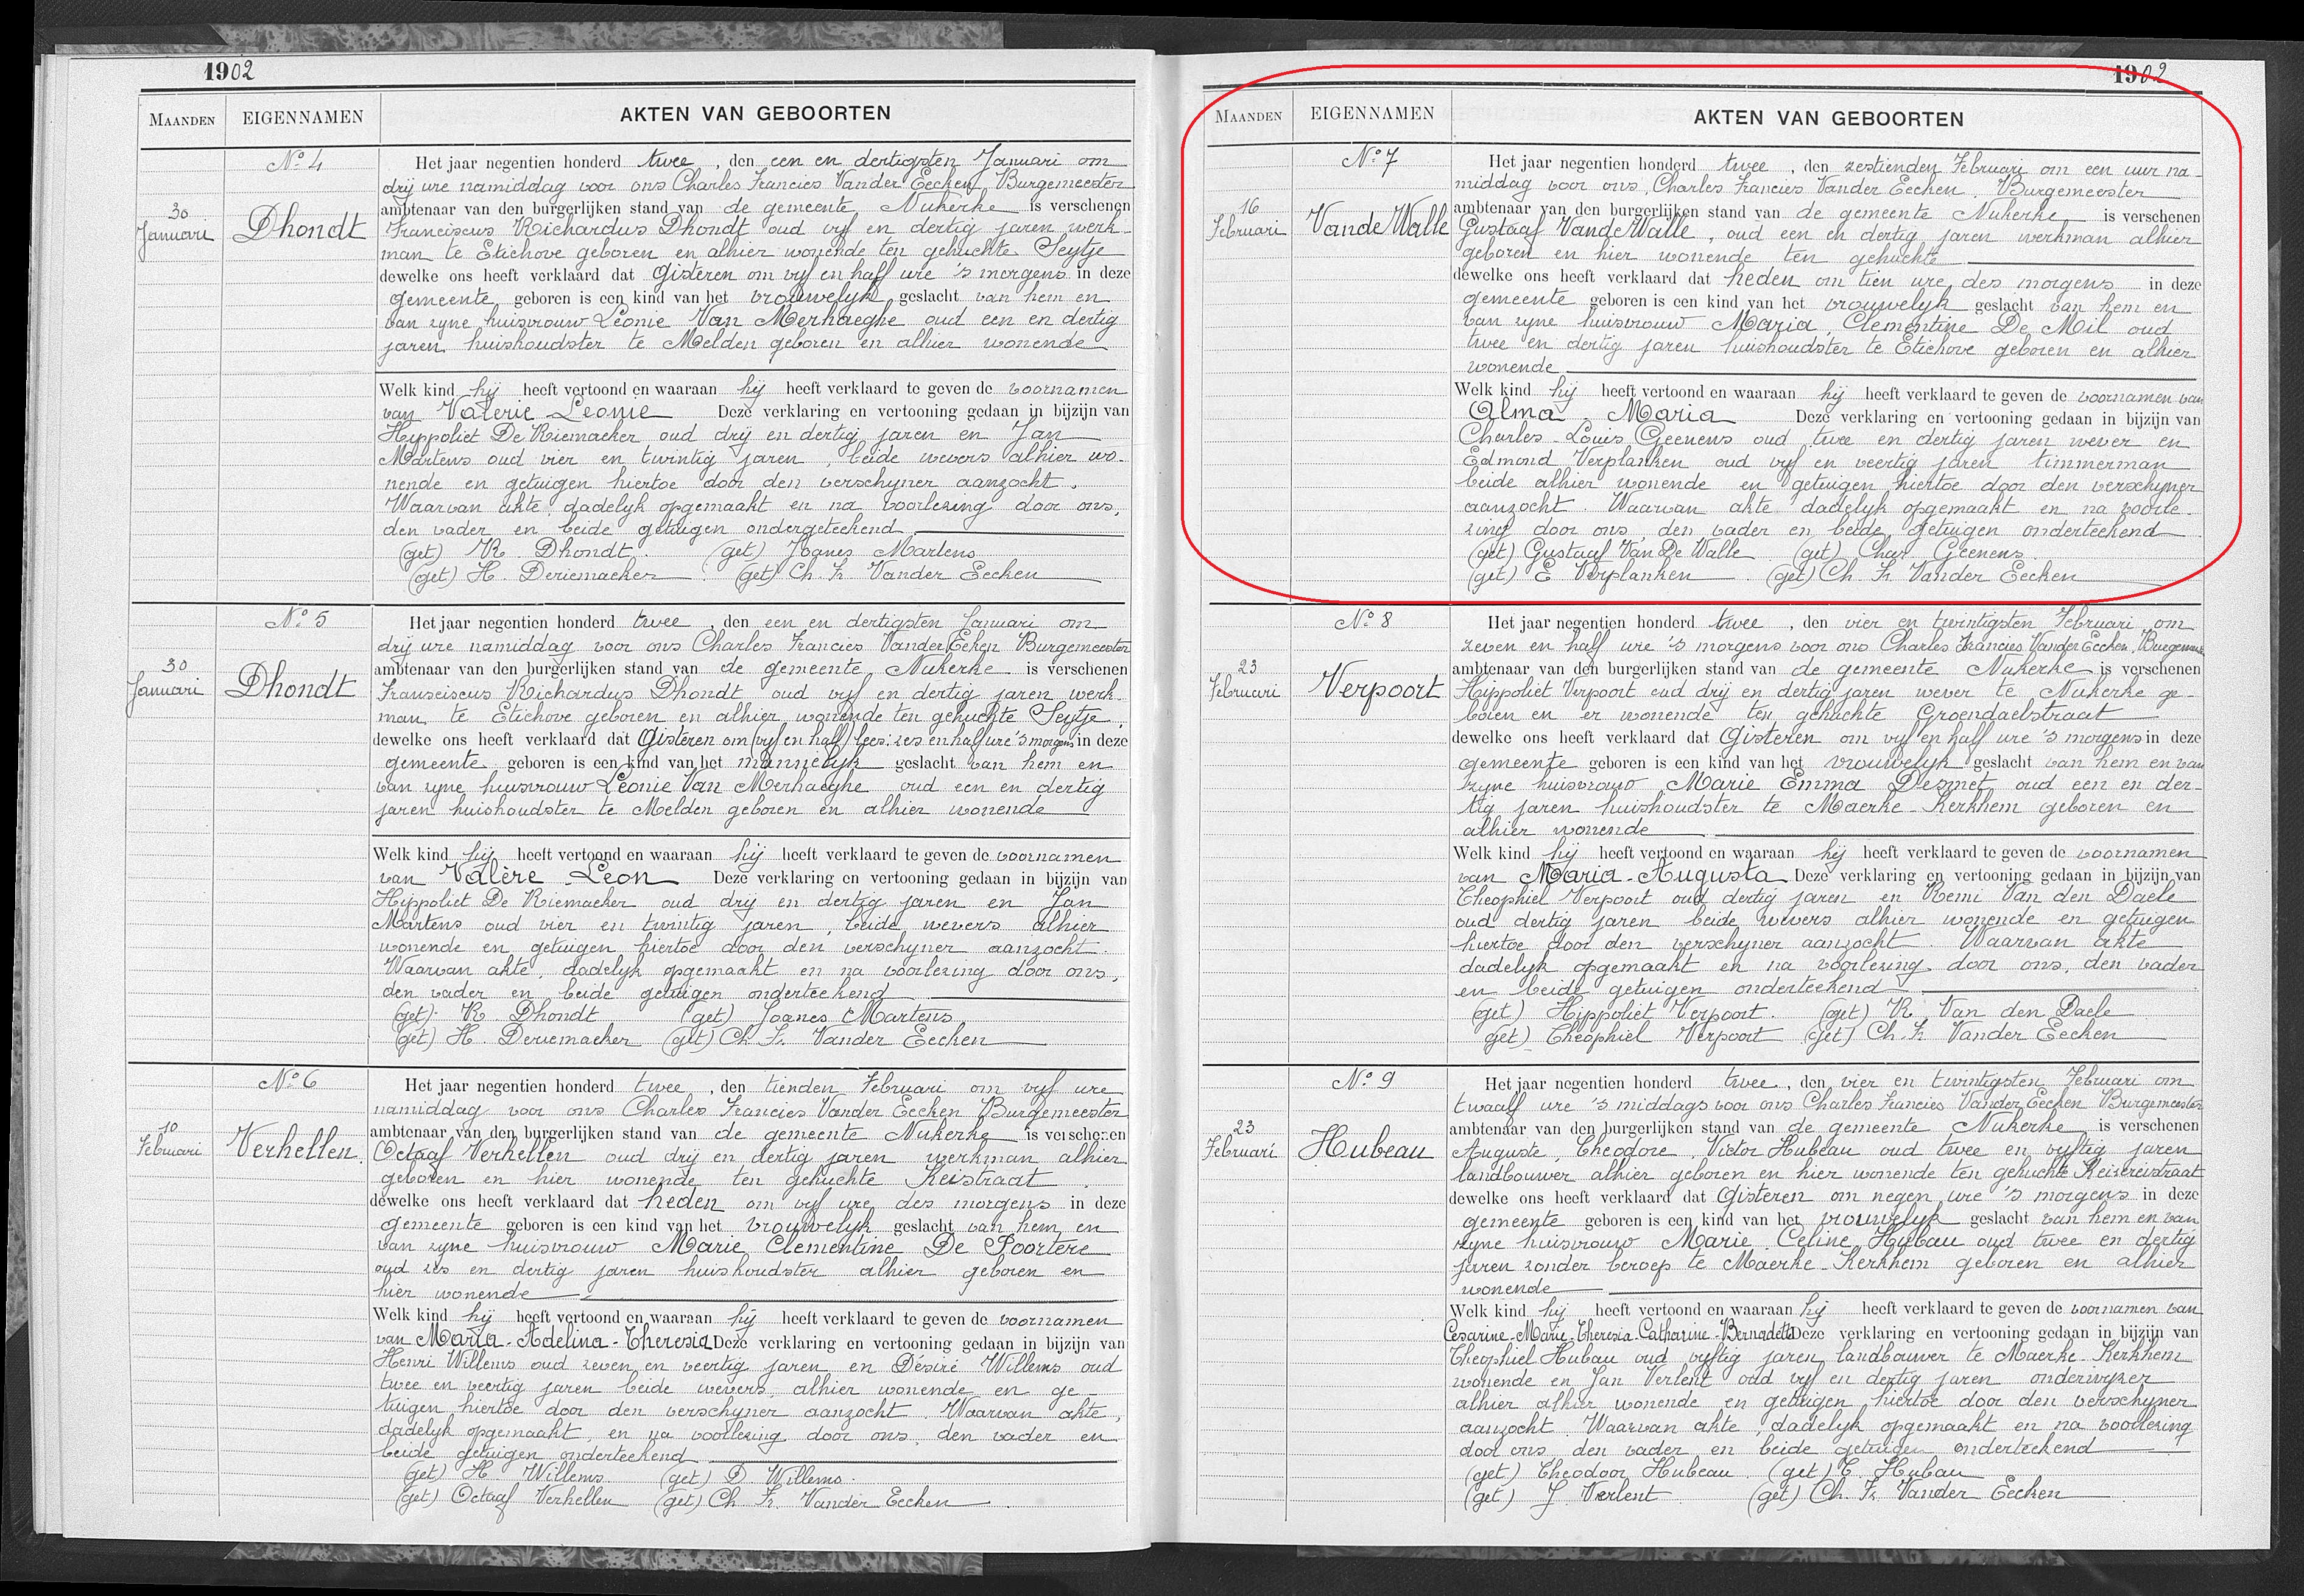 1902
MAANDEN EIGENNAMEN AKTEN VAN GEBOORTEN
30 Januari
No 4
Dhondt
Het jaar negentien honderd twee, den een en dertigsten Januari om
drij ure namiddag voor ons Charles Francies Vander Eecken Burgemeester
ambtenaar van den burgerlijken stand van de gemeente Nukerke is verschenen
Franciscus Richardus Dhondt oud vyf en dertig jaren werk-
man te Etichove geboren en alhier wonende ten gehuchte Seytje
dewelke ons heeft verklaard dat Gisteren om vyf en half ure 's morgens in deze
gemeente geboren is een kind van het vrouwelyk geslacht van hem en
van zyne huisvrouw Leonie Van Merhaeghe oud een en dertig
jaren huishoudster te Melden geboren en alhier wonende
Welk kind hij heeft vertoond en waaraan hij heeft verklaard te geven de voornamen
van Valerie Leonie Deze verklaring en vertooning gedaan in bijzijn van
Hippoliet De Riemaeker oud drij en dertig jaren en Jan
Martens oud vier en twintig jaren, beide wevers alhier wo-
nende en getuigen hiertoe door den verschyner aanzocht.
Waarvan akte, dadelyk opgemaakt en na voorlezing door ons,
den vader en beide getuigen ondergeteekend
(get) R. Dhondt. (get) Joanes Martens
(get) H. Deriemacker (get) Ch. Fr. Vander Eecken
30 Januari
No 5
Dhondt
Het jaar negentien honderd twee, den een en dertigsten Januari om
drij ure namiddag voor ons Charles Francies Vander Eeken Burgemeester
ambtenaar van den burgerlijken stand van de gemeente Nukerke is verschenen
Franseiscus Richardus Dhondt oud vyf en dertig jaren werk-
man te Etichove geboren en alhier wonende ten gehuchte Seytje.
dewelke ons heeft verklaard dat Gisteren om (vyf en half) lees: zes en half ure 's morgens in deze
gemeente geboren is een kind van het mannelyk geslacht van hem en
van zyne huisvrouw Leonie Van Merhaeghe oud een en dertig
jaren huishoudster te Melden geboren en alhier wonende
Welk kind hij heeft vertoond en waaraan hij heeft verklaard te geven de voornamen
van Valère Leon Deze verklaring en vertooning gedaan in bijzijn van
Hippoliet De Riemaeker oud drij en dertig jaren en Jan
Martens oud vier en twintig jaren, beide wevers alhier
wonende en getuigen hiertoe door den verschyner aanzocht.
Waarvan akte, dadelyk opgemaakt en na voorlezing door ons,
den vader en beide getuigen onderteekend
(get). R. Dhondt (get) Joanes Martens
(get) H. Deriemacker (get) Ch. Fr. Vander Eecken
10 Februari
No 6
Verhellen.
Het jaar negentien honderd twee, den tienden Februari om vyf ure
namiddag voor ons Charles Francies Vander Eecken Burgemeester
ambtenaar van den burgerlijken stand van de gemeente Nukerke is verschenen
Octaaf Verhellen oud drij en dertig jaren werkman alhier
geboren en hier wonende ten gehuchte Keistraat
dewelke ons heeft verklaard dat heden om vyf ure des morgens in deze
gemeente geboren is een kind van het vrouwelyk geslacht van hem en
van zyne huisvrouw Marie Clementine De Poortere
oud zes en dertig jaren huishoudster alhier geboren en
hier wonende
Welk kind hij heeft vertoond en waaraan hij heeft verklaard te geven de voornamen
van Maria-Adelina-Theresia Deze verklaring en vertooning gedaan in bijzijn van
Henri Willems oud zeven en veertig jaren en Désiré Willems oud
twee en veertig jaren beide wevers, alhier wonende en ge-
tuigen hiertoe door den verschyner aanzocht. Waarvan akte,
dadelyk opgemaakt, en na voorlezing door ons, den vader en
beide getuigen onderteekend
(get) H. Willems (get) D. Willems.
(get) Octaaf Verhellen (get) Ch. Fr. Vander Eecken
1902
MAANDEN EIGENNAMEN AKTEN VAN GEBOORTEN
16 Februari
No 7
VandeWalle
Het jaar negentien honderd twee, den zestienden Februari om een uur na-
middag voor ons, Charles Francies Vander Eecken Burgemeester
ambtenaar van den burgerlijken stand van de gemeente Nukerke is verschenen
Gustaaf VandeWalle, oud een en dertig jaren werkman alhier
geboren en hier wonende ten gehuchte
dewelke ons heeft verklaard dat heden om tien ure des morgens in deze
gemeente geboren is een kind van het vrouwelyk geslacht van hem en
van zyne huisvrouw Maria, Clementine De Mil oud
twee en dertig jaren huishoudster te Etichove geboren en alhier
wonende
Welk kind hij heeft vertoond en waaraan hij heeft verklaard te geven de voornamen van
Alma - Maria Deze verklaring en vertooning gedaan in bijzijn van
Charles-Louis Geenens oud twee en dertig jaren wever en
Edmond Verplanken oud vyf en veertig jaren timmerman
beide alhier wonende en getuigen hiertoe door den verschyner
aanzocht. Waarvan akte dadelyk opgemaakt en na voorle-
zing door ons, den vader en beide getuigen onderteekend.
(get) Gustaaf Van De Walle (get) Char Geenens.
(get) E Verplanken (get) Ch. Fr. Vander Eecken
23 Februari
No 8
Verpoort
Het jaar negentien honderd twee, den vier en twintigsten Februari om
zeven en half ure 's morgens voor ons Charles Francies Vander Eecken, Burgemeester
ambtenaar van den burgerlijken stand van de gemeente Nukerke is verschenen
Hippoliet Verpoort oud drij en dertig jaren wever te Nukerke ge-
boren en er wonende ten gehuchte Groendaelstraat
dewelke ons heeft verklaard dat Gisteren om vyf en half ure 's morgens in deze
gemeente geboren is een kind van het vrouwelyk geslacht van hem en van
zyne huisvrouw Marie Emma Desmet oud een en der-
tig jaren huishoudster te Maerke-Kerkhem geboren en
alhier wonende
Welk kind hij heeft vertoond en waaraan hij heeft verklaard te geven de voornamen
van Maria-Augusta Deze verklaring en vertooning gedaan in bijzijn van
Theophiel Verpoort oud dertig jaren en Remi Van den Daele
oud dertig jaren beide wevers alhier wonende en getuigen
hiertoe door den verschyner aanzocht. Waarvan akte
dadelyk opgemaakt en na voorlezing door ons, den vader
en beide getuigen onderteekend
(get) Hippoliet Verpoort. (get) R. Van den Daele
(get) Theophiel Verpoort (get) Ch. Fr. Vander Eecken
23 Februari
No 9
Hubeau
Het jaar negentien honderd twee, den vier en twintigsten Februari om
twaalf ure 's middags voor ons Charles Francies Vander Eecken Burgemeester
ambtenaar van den burgerlijken stand van de gemeente Nukerke is verschenen
Auguste, Theodore, Victor Hubeau oud twee en vyftig jaren
landbouwer alhier geboren en hier wonende ten gehuchte Keisereistraat
dewelke ons heeft verklaard dat Gisteren om negen ure 's morgens in deze
gemeente geboren is een kind van het vrouwelyk geslacht van hem en van
zyne huisvrouw Marie, Celine Hubau oud twee en dertig
jaren zonder beroep te Maerke-Kerkhem geboren en alhier
wonende
Welk kind hij heeft vertoond en waaraan hij heeft verklaard te geven de voornamen van
Cesarine-Marie-Theresia-Catharine-Bernadette Deze verklaring en vertooning gedaan in bijzijn van
Theophiel Hubau oud vyftig jaren landbouwer te Maerke-Kerkhem
wonende en Jan Verlent oud vyf en dertig jaren onderwyzer
alhier alhier wonende en getuigen hiertoe door den verschyner
aanzocht. Waarvan akte, dadelyk opgemaakt en na voorlezing
door ons, den vader en beide getuigen onderteekend
(get) Theodoor Hubeau. (get) T. Hubau
(get) J. Verlent (get) Ch. Fr. Vander Eecken